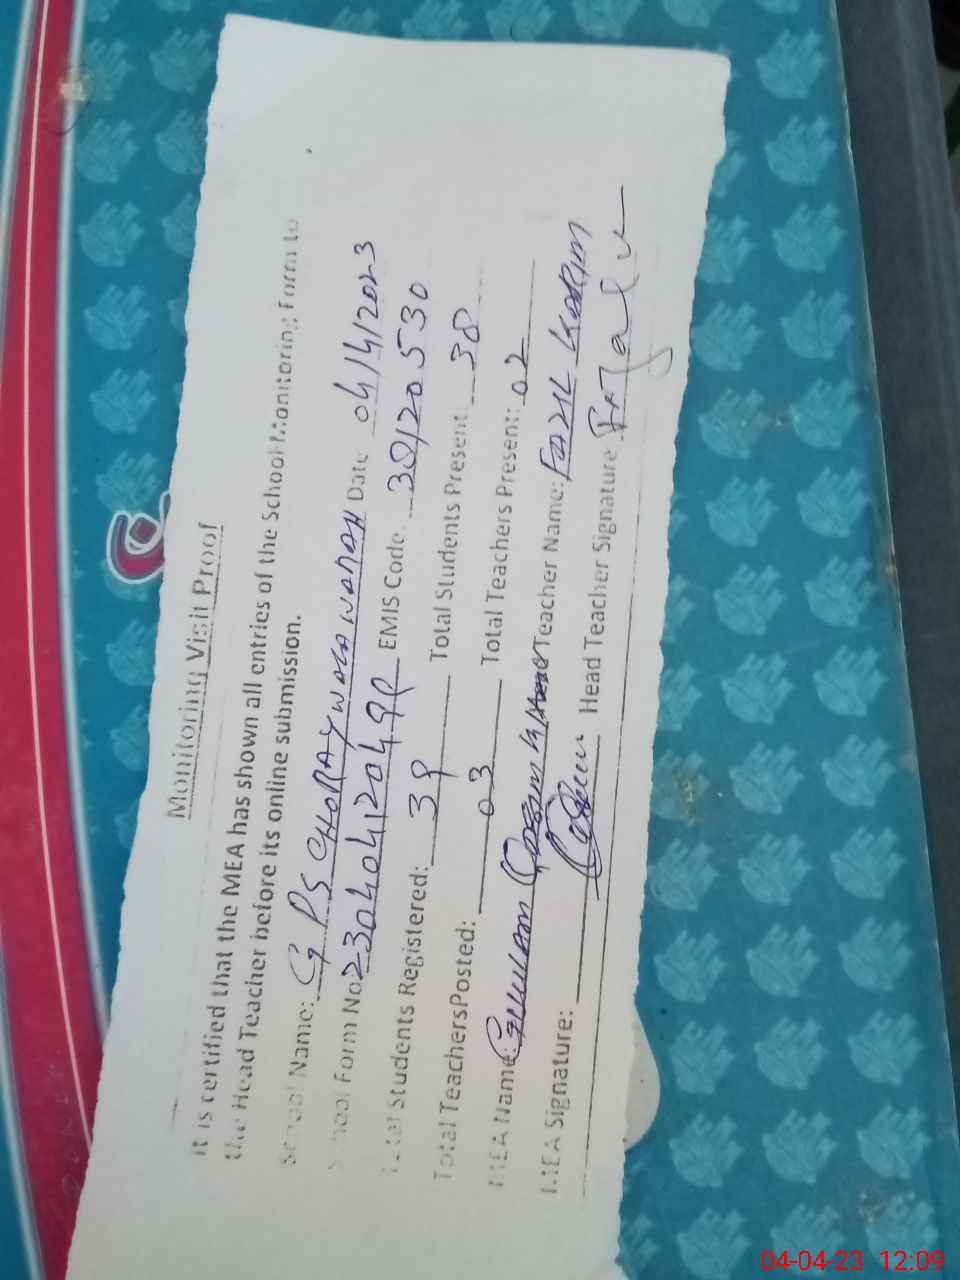 Monitoring Visit Proof
It is certified that the MEA has shown all entries of the School Monitoring Form to
the Head Teacher before its online submission.
School Name: GPS GHORAYWALA WANDAH Date 04/4/2023
School Form No. EMIS Code. 38120530
Total Students Registered: 39 Total Students Present: 38
Total TeachersPosted: 03 Total Teachers Present: 02
MEA Name: Teacher Name: FAZIL KARIM
MEA Signature: Head Teacher Signature
04-04-23 12:09